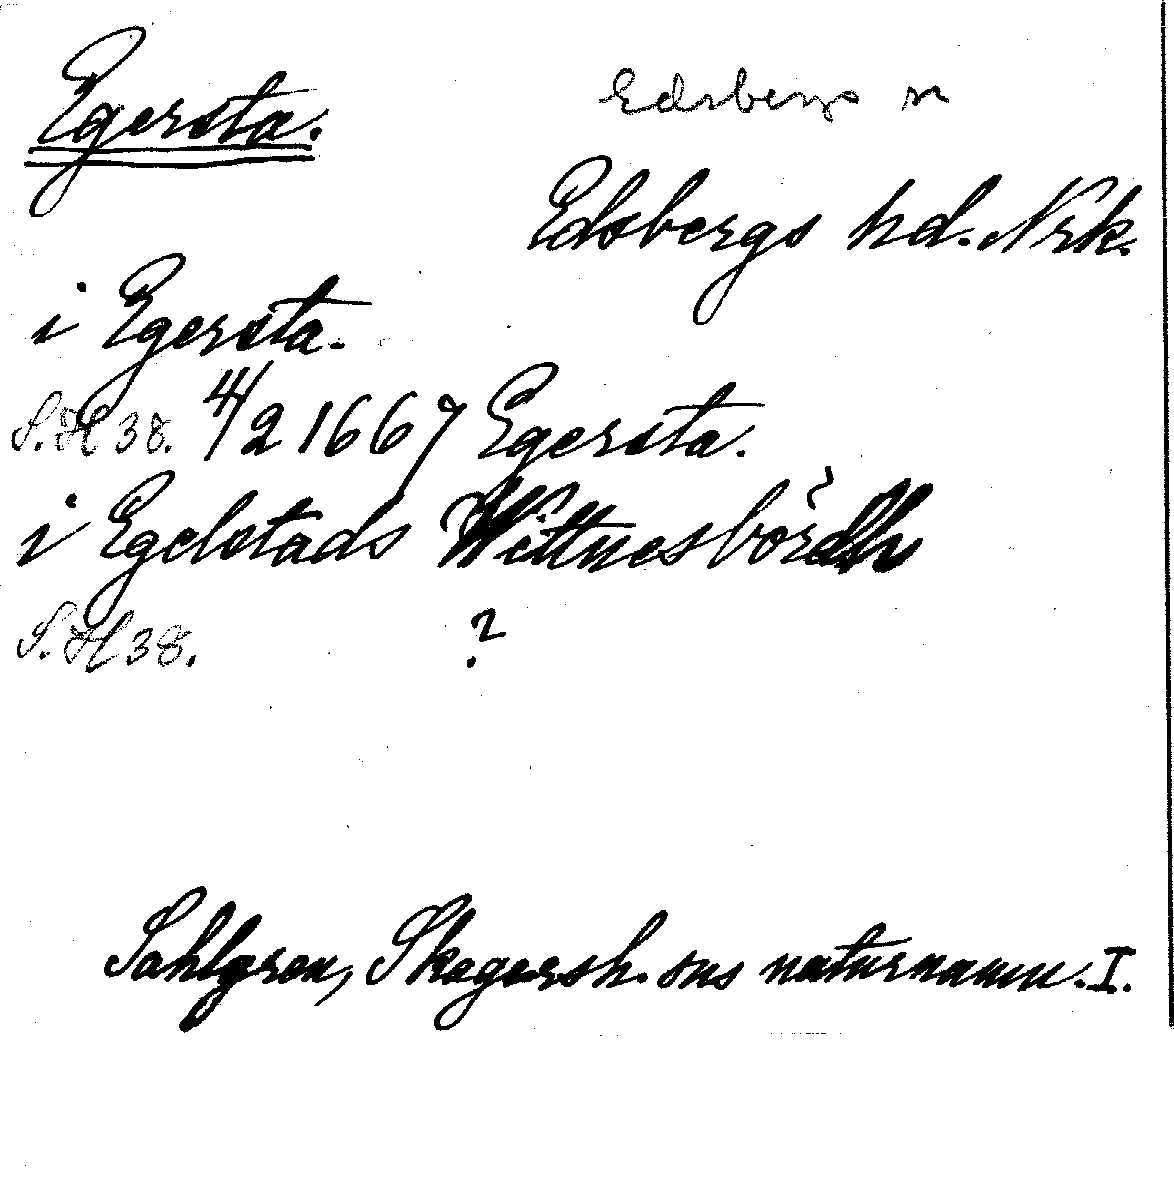 Egersta.
Edsbergs sn
Edsbergs hd. Nrk.
i Egersta.
S. H 38. 4/2 1667 Egersta.
i Egelstads Wittnesbördh
S. H 38. ?
Sahlgren, Skagersh. sns naturnamn. I.